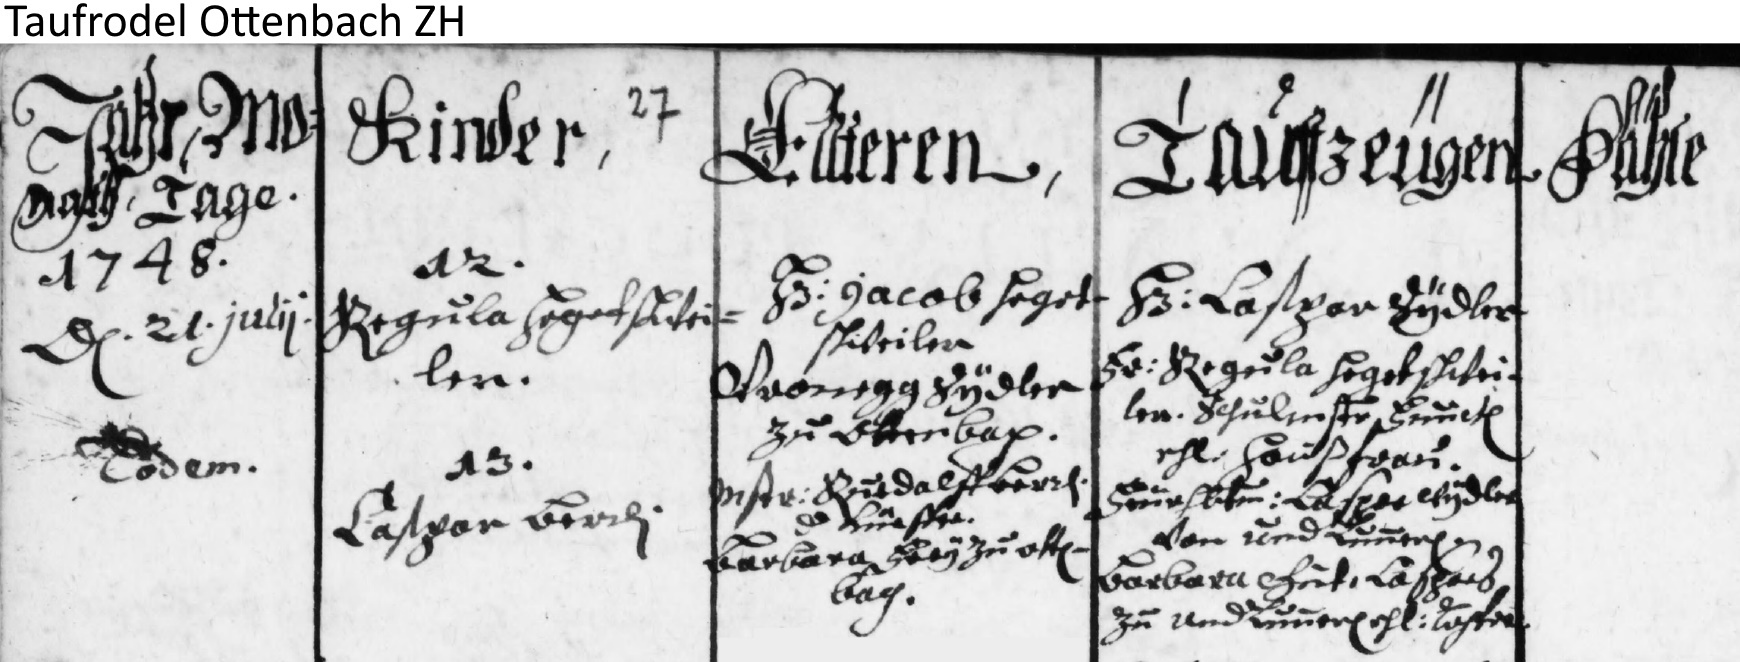 Taufrodel Ottenbach ZH
Jahr, Mo-
nath, Tage.
1748.
D. 21. julij.
Eodem.
Kinder, 27
12.
Regula Hegetschwei-
ler.
13.
Caspar Berli.
Elteren,
Hs: Jacob Heget-
schweiler
Vronegg Sydler
zu Ottenbach.
Mstr: Rudolff Berli.
d
Barbara Frey zu Otten-
bach.
Tauffzeugen
Hs: Caspar Sydler
Fr: Regula Hegetschwei-
ler. Schulmstr
ehl: Haußfrau.
Caspar Sydler
von und
Barbara Caspars
zu und ehl: Tochter.